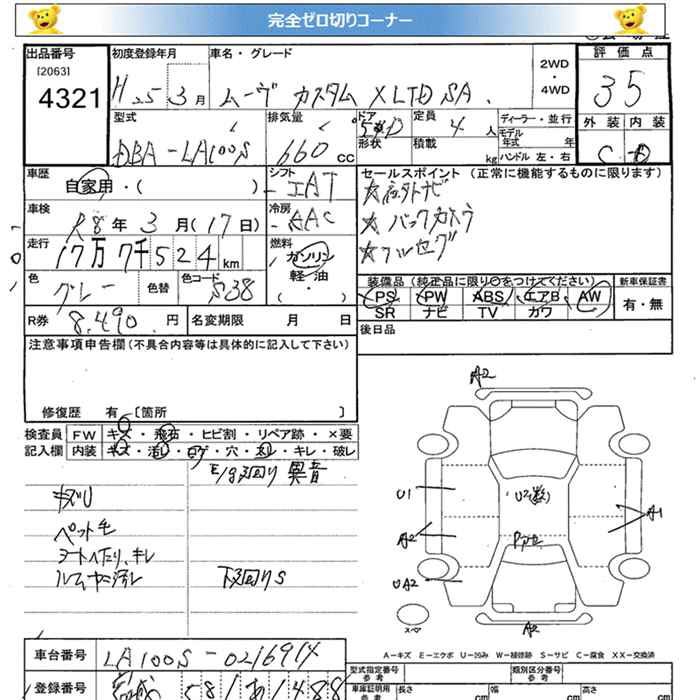 完全ゼロ切りコーナー
出品番号 初度登録年月 車名・グレード 2WD ・ 4WD 評価点
[2063]
4321 H25 3月 ムーヴ カスタム XLTD SA 35
型式 排気量 ドア 形状 定員 積載 ディーラー・並行 外装 内装
DBA-LA100S 660 CC 5HD 4人 kg モデル年式 年 ハンドル 左・右 C D
車歴 自家用・( ) シフト IAT セールスポイント(正常に機能するものに限ります)
車検 R8年3月(17日) 冷房 AAC ☆社外ナビ
☆バックカメラ
走行 17万7千524km 燃料 ガソリン ☆フルセグ
軽・油
( ・ )
色 グレー 色替 色コード S38 装備品(純正品に限り○をつけてください) 新車保証書
PS PW ABS エアB AW 有・無
R券 8,490円 名変期限 月 日 SR ナビ TV カワ
注意事項申告欄(不具合内容等は具体的に記入して下さい) 後日品
修復歴 有 [箇所 ]
検査員 FW キズ・飛石・ヒビ割・リペア跡・×要
記入欄 内装 キズ・汚レ・コゲ・穴・スレ・キレ・破レ
E/g回り 異音
キズU
ペット毛
シートヘたり、キレ
ルームヤニ汚レ 下回りS
A2
U1 U2(数) A1
A2
UA2
スペア A2
A-キズ E-エクボ U-凹み W-補修跡 S-サビ C-腐食 XX-交換済
車台番号 LA100S-0216914 型式指定番号 参考 類別区分番号 参考
登録番号 581 あ1488 車庫証明用 参考 長さ cm 幅 cm 高さ cm